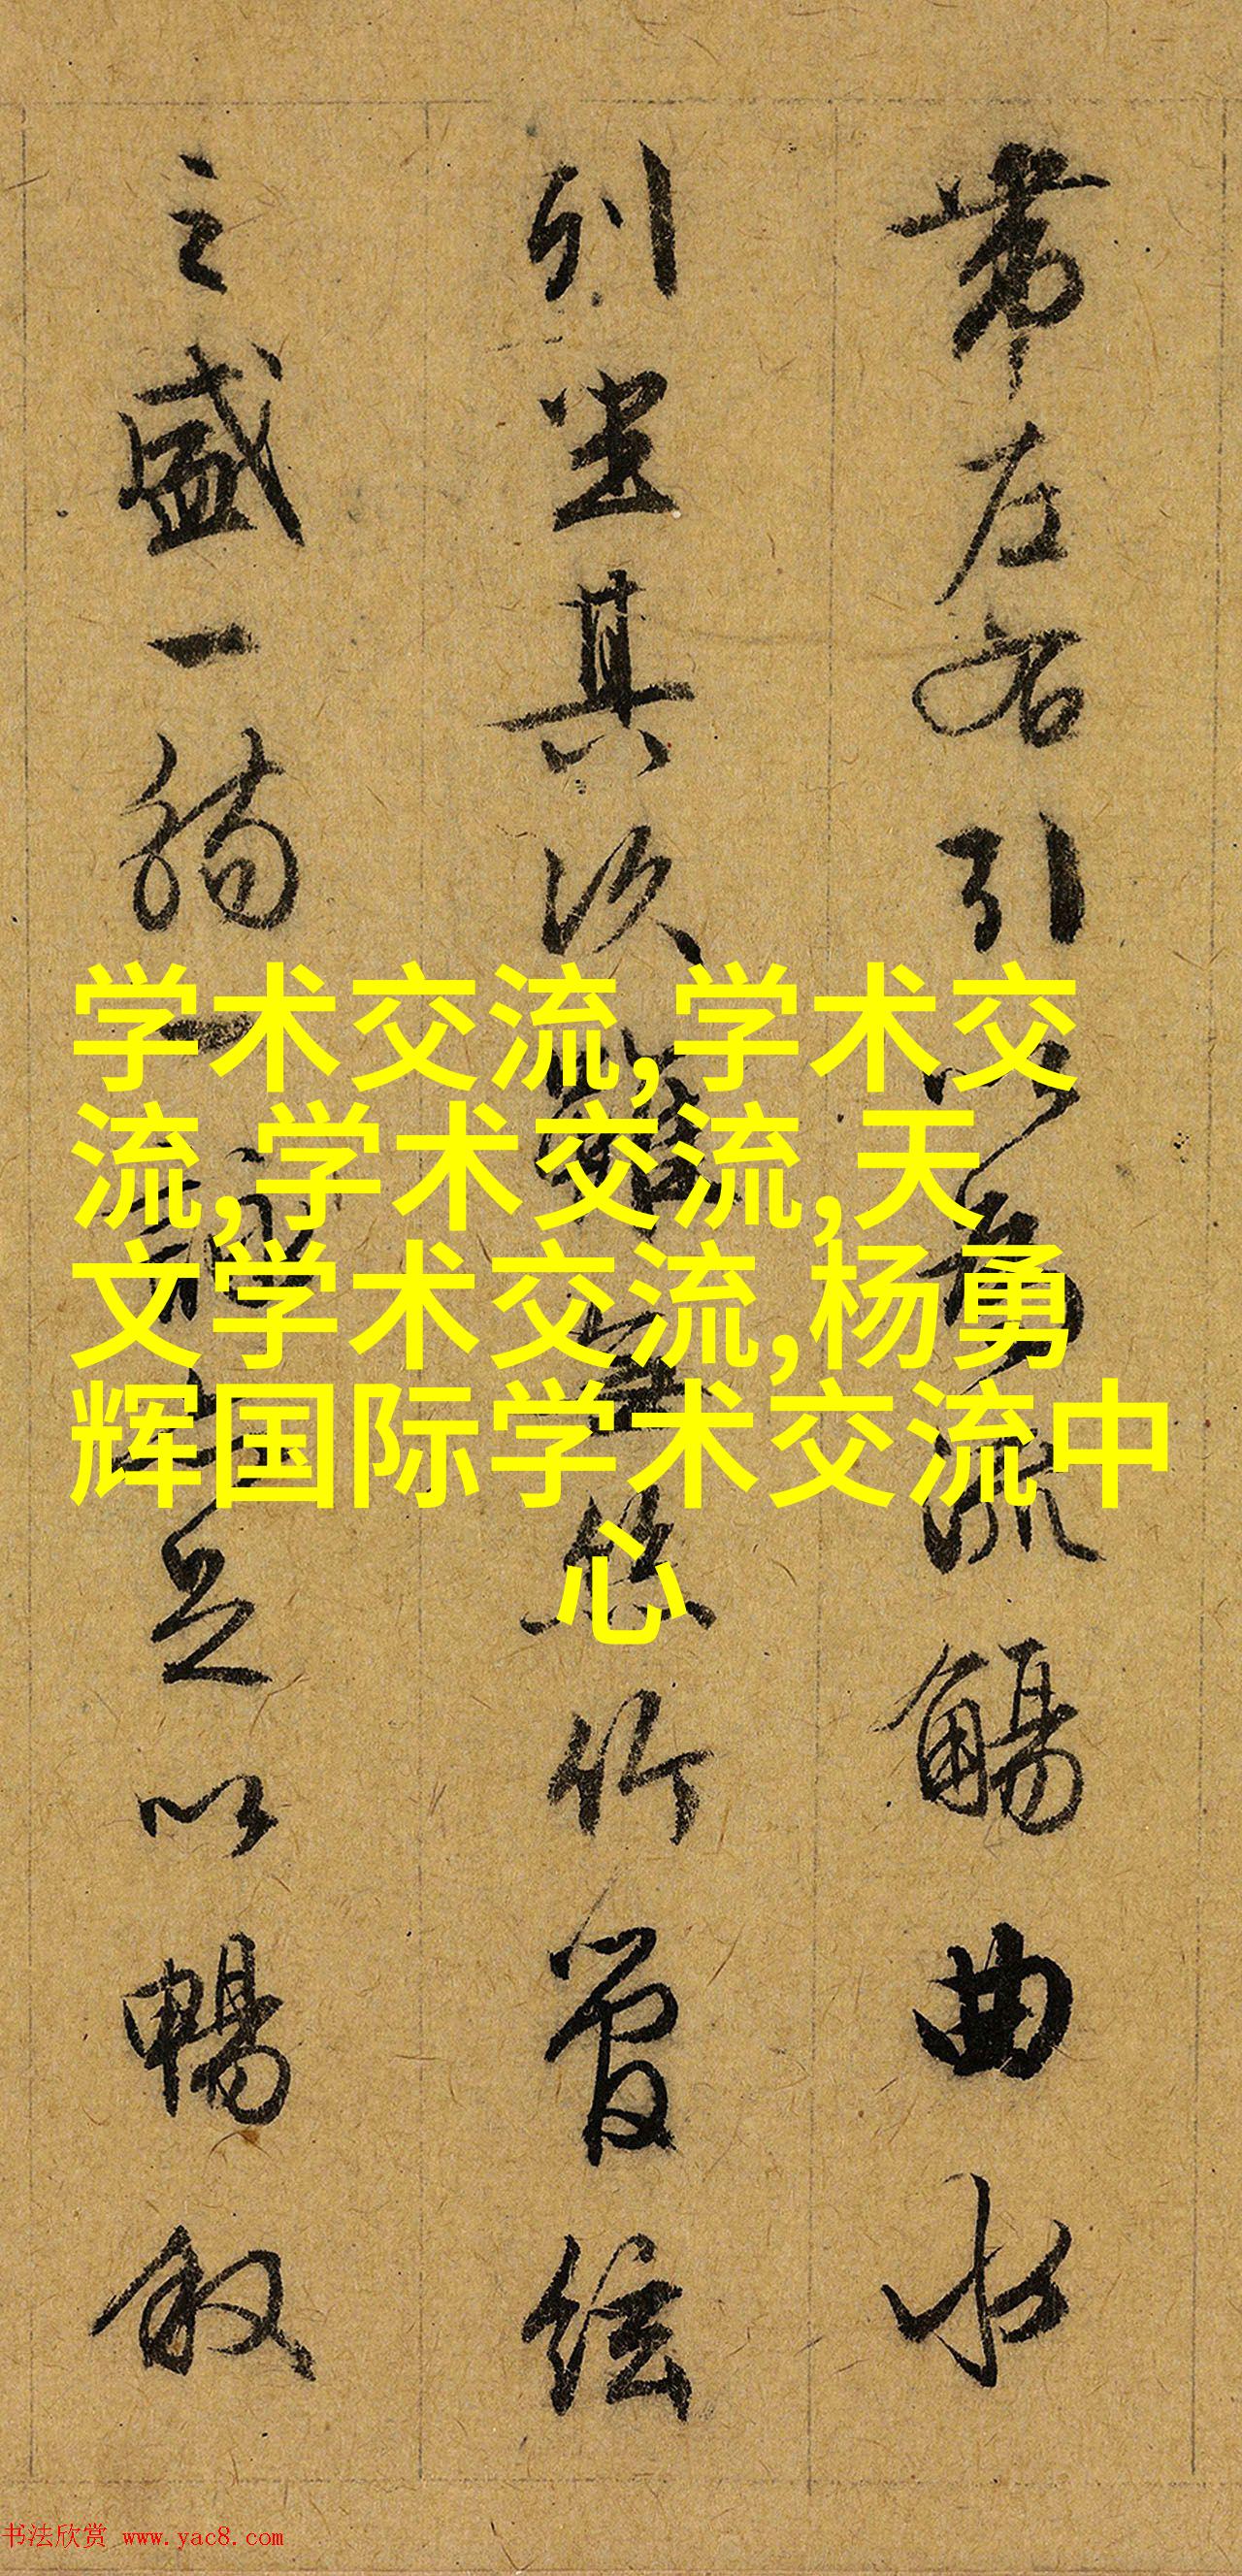 帶左右引以為流觴曲水
列坐其次雖無絲竹管絃
之盛一觴一詠亦足以暢叙
学术交流,学术交
流,学术交流,天
文学术交流,杨勇
辉国际学术交流中
心
书法欣赏 www.yac8.com